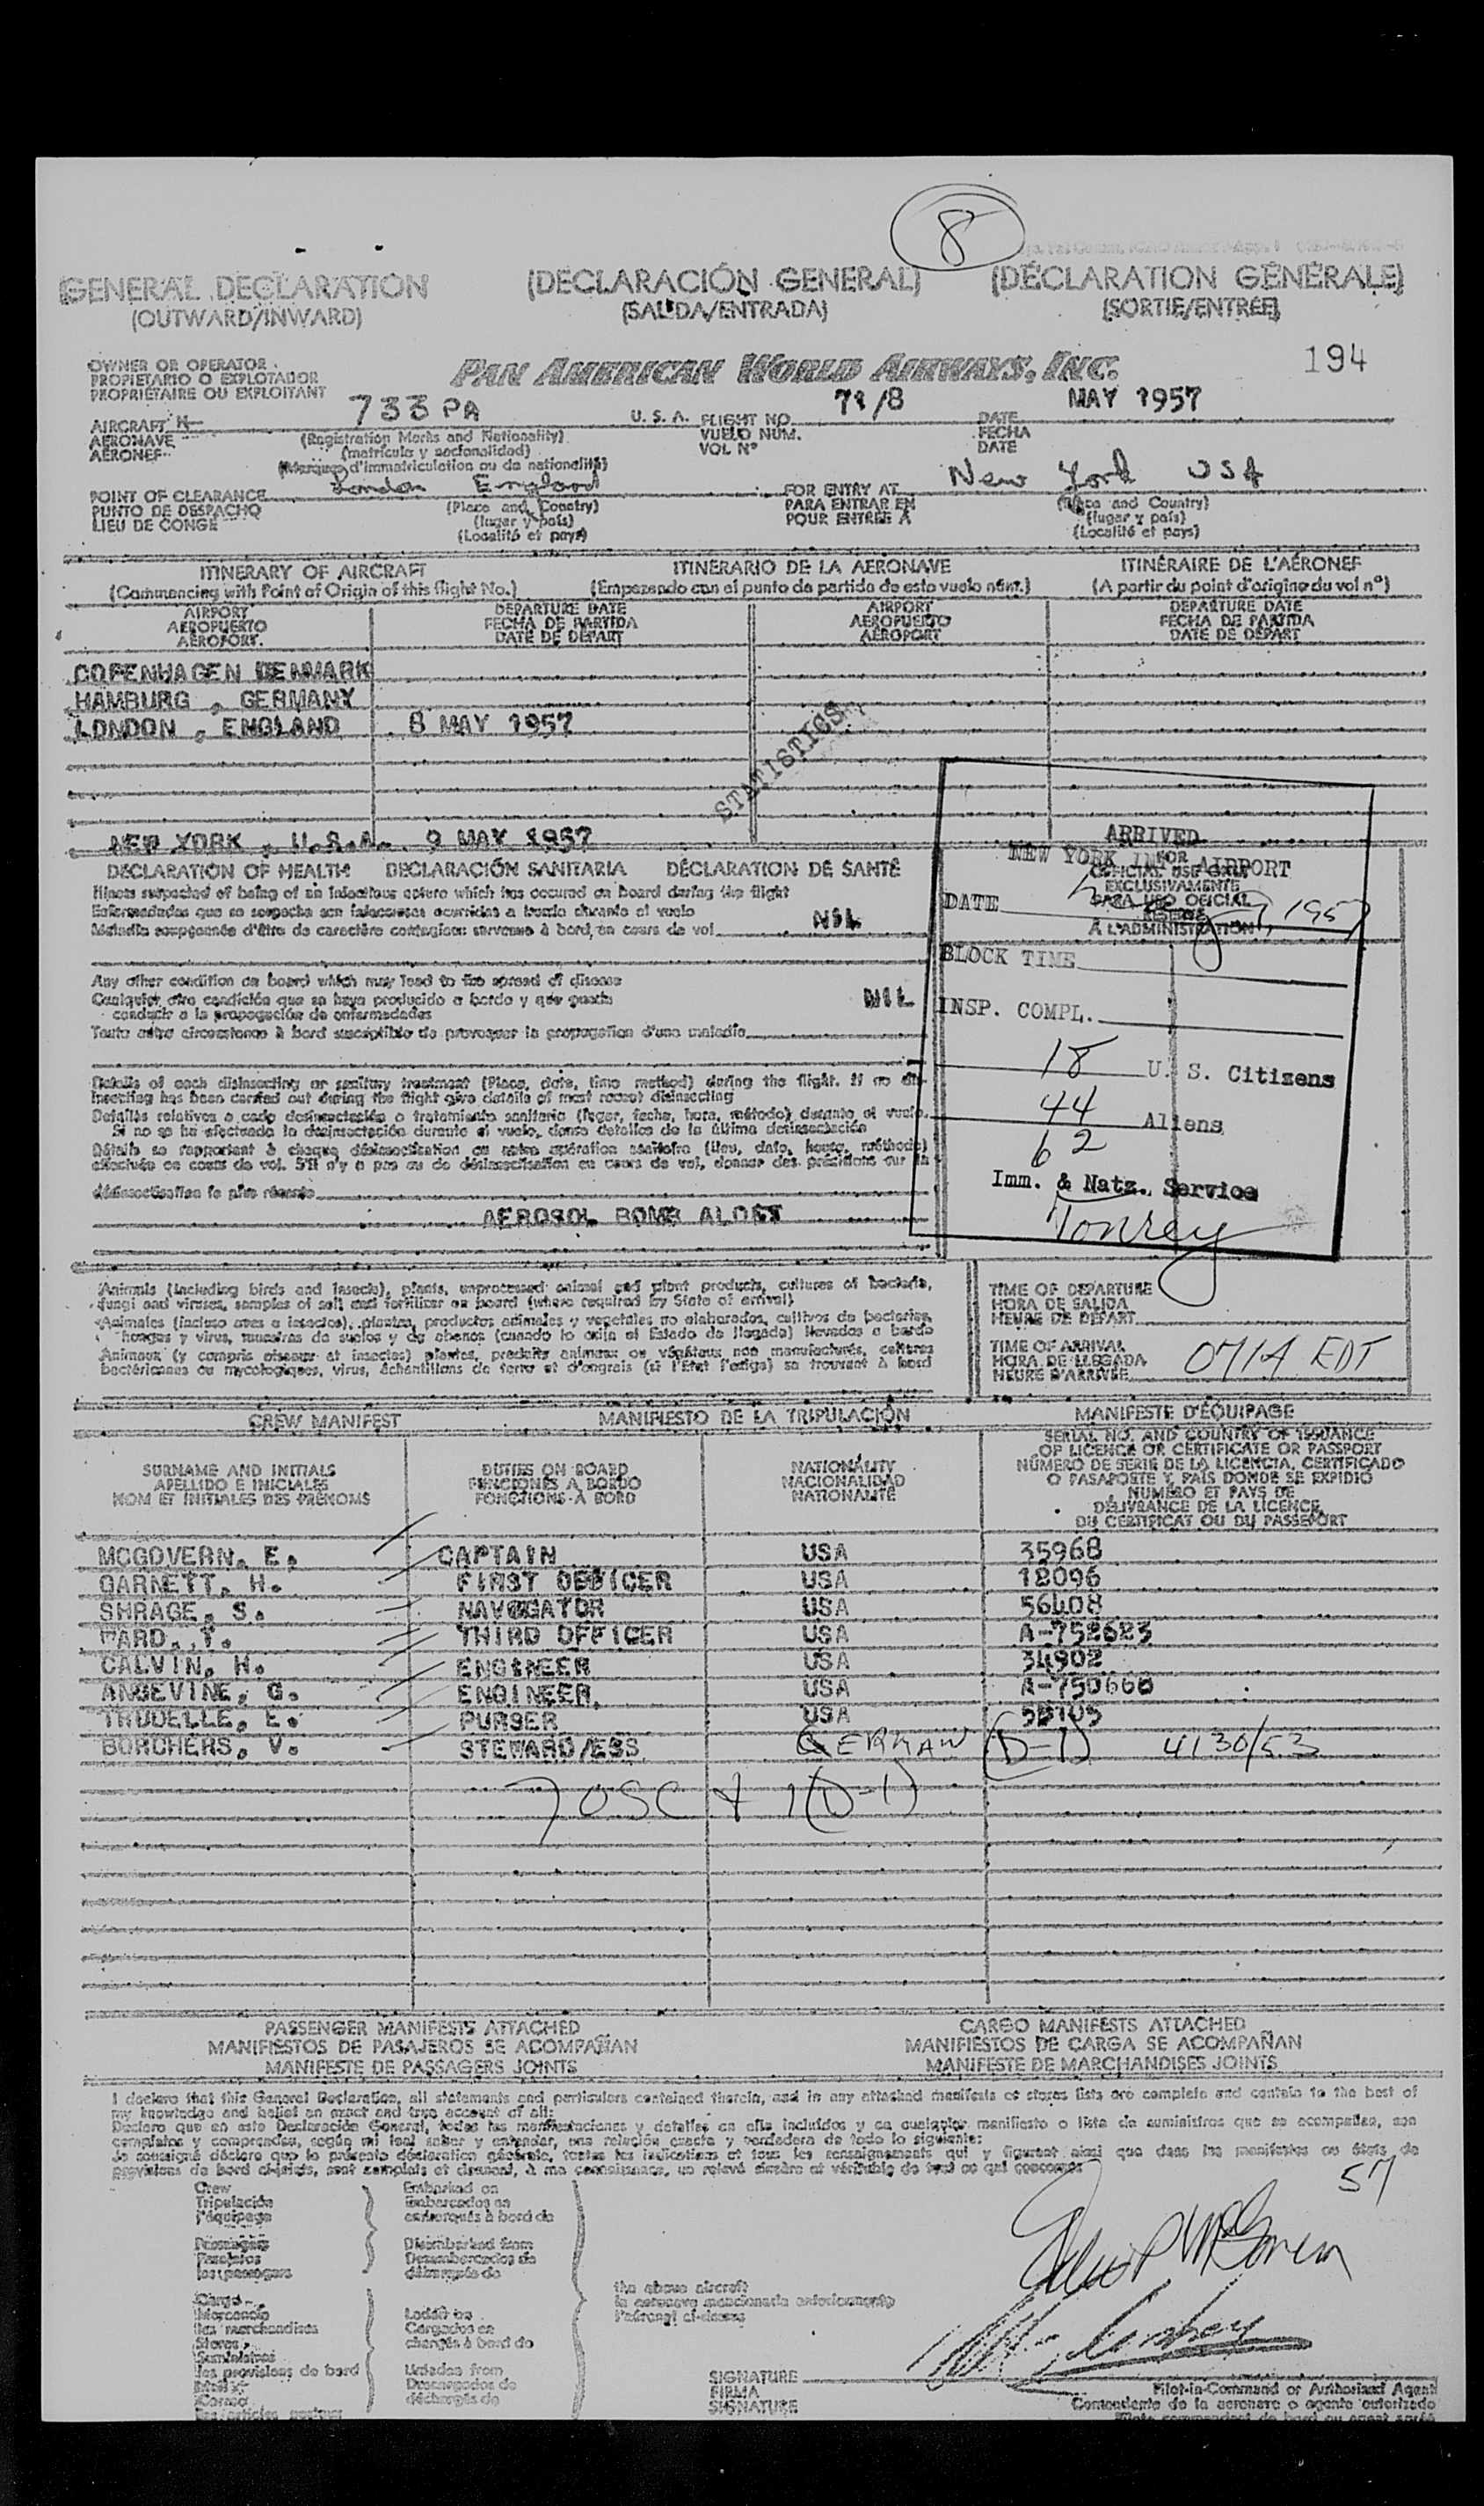 8
GENERAL DECLARATION (DECLARACIÓN GENERAL) (DÉCLARATION GÉNÉRALE)
(OUTWARD/INWARD) (SALIDA/ENTRADA) (SORTIE/ENTRÉE)
OWNER OR OPERATOR
PROPIETARIO O EXPLOTADOR
PROPRIÉTAIRE OU EXPLOITANT
PAN AMERICAN WORLD AIRWAYS, INC. 194
AIRCRAFT N 733 PA U.S.A. FLIGHT NO. 71/8 DATE MAY 1957
AERONAVE (Registration Marks and Nationality) VUELO NÚM. FECHA
AÉRONEF (matrícula y nacionalidad) VOL Nº DATE
(Marques d'immatriculation ou de nationalité)
POINT OF CLEARANCE London England FOR ENTRY AT New York USA
PUNTO DE DESPACHO (Place and Country) PARA ENTRAR EN (Place and Country)
LIEU DE CONGÉ (lugar y país) POUR ENTRÉE À (lugar y país)
(Localité et pays) (Localité et pays)
ITINERARY OF AIRCRAFT ITINERARIO DE LA AERONAVE ITINÉRAIRE DE L'AÉRONEF
(Commencing with Point of Origin of this flight No.) (Empezando con el punto de partida de este vuelo núm.) (A partir du point d'origine du vol nº)
AIRPORT DEPARTURE DATE AIRPORT DEPARTURE DATE
AEROPUERTO FECHA DE PARTIDA AEROPUERTO FECHA DE PARTIDA
AÉROPORT DATE DE DÉPART AÉROPORT DATE DE DÉPART
COPENHAGEN DENMARK
HAMBURG, GERMANY
LONDON, ENGLAND 8 MAY 1957
STATISTICS
NEW YORK, U.S.A. 9 MAY 1957
DECLARATION OF HEALTH DECLARACIÓN SANITARIA DÉCLARATION DE SANTÉ
Illness suspected of being of an infectious nature which has occured on board during the flight
Enfermedades que se sospecha son infecciosas ocurridas a bordo durante el vuelo
Maladie soupçonnée d'être de caractère contagieux survenue à bord, en cours de vol NIL
Any other condition on board which may lead to the spread of disease
Cualquier otra condición que se haya producido a bordo y que pueda
conducir a la propagación de enfermedades
Toute autre circonstance à bord susceptible de provoquer la propagation d'une maladie
NIL
Details of each disinsecting or sanitary treatment (Place, date, time method) during the flight. If no dis-
insecting has been carried out during the flight give details of most recent disinsecting
Detalles relativos a cada desinsectación o tratamiento sanitario (lugar, fecha, hora, método) durante el vuelo.
Si no se ha efectuado la desinsectación durante el vuelo, dense detalles de la última desinsectación
Détails se rapportant à chaque désinsectisation ou autre opération sanitaire (lieu, date, heure, méthode)
effectuée en cours de vol. S'il n'y a pas eu de désinsectisation en cours de vol, donner des précisions sur la
désinsectisation la plus récente
AEROSOL BOMB ALOFT
ARRIVED
NEW YORK INT. AIRPORT
FOR
OFFICIAL USE ONLY
EXCLUSIVAMENTE
PARA USO OFICIAL
RÉSERVÉ
A L'ADMINISTRATION
DATE 1957
BLOCK TIME
INSP. COMPL.
18 U. S. Citizens
44 Aliens
62
Imm. & Natz. Service
Tonrey
Animals (including birds and insects), plants, unprocessed animal and plant products, cultures of bacteria,
fungi and viruses, samples of soil and fertilizer on board (where required by State of arrival)
Animales (incluso aves e insectos), plantas, productos animales y vegetales no elaborados, cultivos de bacterias,
hongos y virus, muestras de suelos y de abonos (cuando lo exija el Estado de llegada) llevados a bordo
Animaux (y compris oiseaux et insectes) plantes, produits animaux ou végétaux non manufacturés, cultures
bactériennes ou mycologiques, virus, échantillons de terre et d'engrais (si l'État l'exige) se trouvant à bord
TIME OF DEPARTURE
HORA DE SALIDA
HEURE DE DÉPART
TIME OF ARRIVAL
HORA DE LLEGADA
HEURE D'ARRIVÉE 0714 EDT
CREW MANIFEST MANIFIESTO DE LA TRIPULACIÓN MANIFESTE D'ÉQUIPAGE
SURNAME AND INITIALS DUTIES ON BOARD NATIONALITY SERIAL NO. AND COUNTRY OF ISSUANCE
APELLIDO E INICIALES FUNCIONES A BORDO NACIONALIDAD OF LICENCE OR CERTIFICATE OR PASSPORT
NOM ET INITIALES DES PRÉNOMS FONCTIONS À BORD NATIONALITÉ NÚMERO DE SERIE DE LA LICENCIA, CERTIFICADO
O PASAPORTE Y PAÍS DONDE SE EXPIDIÓ
NUMÉRO ET PAYS DE
DÉLIVRANCE DE LA LICENCE,
DU CERTIFICAT OU DU PASSEPORT
MCGOVERN, E. CAPTAIN USA 35968
GARNETT, H. FIRST OFFICER USA 18096
SHRAGE, S. NAVIGATOR USA 56408
WARD, T. THIRD OFFICER USA A-752623
CALVIN, H. ENGINEER USA 34902
ANGEVINE, G. ENGINEER USA A-750660
TRUDELLE, E. PURSER USA 55105
BORCHERS, V. STEWARD/ESS GERMAN (D-1) 4130/53
7 USC & 1(D-1)
PASSENGER MANIFESTS ATTACHED CARGO MANIFESTS ATTACHED
MANIFIESTOS DE PASAJEROS SE ACOMPAÑAN MANIFIESTOS DE CARGA SE ACOMPAÑAN
MANIFESTE DE PASSAGERS JOINTS MANIFESTE DE MARCHANDISES JOINTS
I declare that this General Declaration, all statements and particulars contained therein, and in any attached manifests or stores lists are complete and contain to the best of
my knowledge and belief an exact and true account of all:
Declaro que en esta Declaración General, todas las manifestaciones y detalles en ella incluidos y en cualquier manifiesto o lista de suministros que se acompañen, son
completos y comprenden, según mi leal saber y entender, una relación exacta y verdadera de todo lo siguiente:
Je soussigné déclare que la présente déclaration générale, toutes les indications et tous les renseignements qui y figurent ainsi que dans les manifestes ou états de
provisions de bord ci-joints, sont complets et donnent, à ma connaissance, un relevé sincère et véritable de tout ce qui concerne
57
Crew Embarked on
Tripulación Embarcados en
l'équipage embarqués à bord de
Passengers Disembarked from
Pasajeros Desembarcados de
les passagers débarqués de
Cargo
Mercancía Loaded on
les marchandises Cargados en
Stores chargés à bord de
Suministros
les provisions de bord Unloaded from
Descargados de
Correo déchargés de
the above aircraft
la aeronave mencionada anteriormente
l'aéronef ci-dessus
SIGNATURE
FIRMA
SIGNATURE
Pilot-in-Command or Authorized Agent
Comandante de la aeronave o agente autorizado